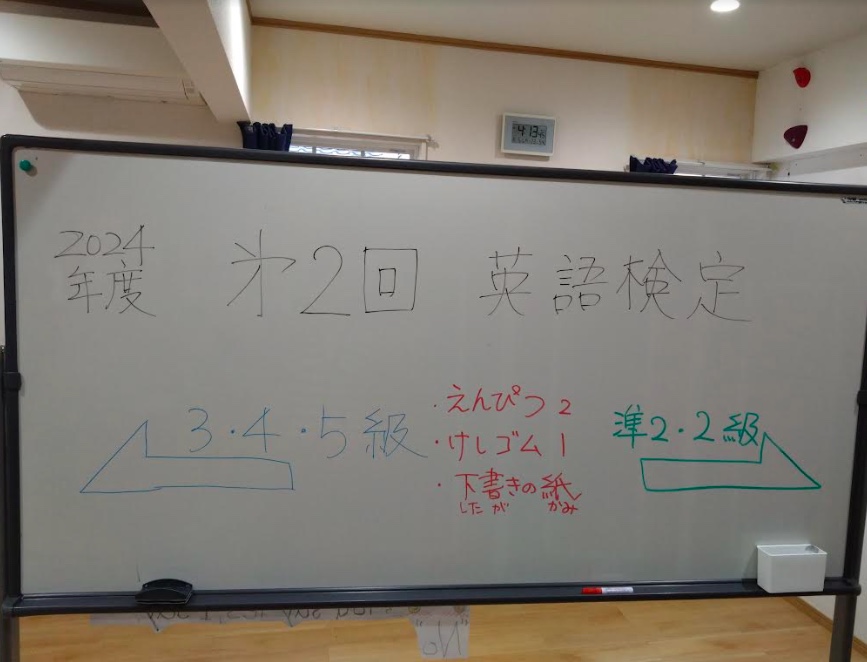 2024
年度
第2回 英語検定
3・4・5級
・えんぴつ 2
・けしゴム 1
・下書きの紙
したが かみ
準2・2級
4:13
"No"